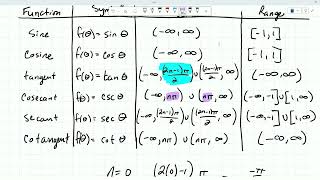 Function Sym Range
Sine f(θ)=sin θ (-∞,∞) [-1,1]
Cosine f(θ)=cos θ (-∞,∞) [-1,1]
tangent f(θ)=tan θ (-∞, (2n-1)π/2) ∪ ((2n-1)π/2, ∞) (-∞,∞)
Cosecant f(θ)=csc θ (-∞, nπ) ∪ (nπ, ∞) (-∞,-1]∪[1,∞)
Secant f(θ)=sec θ (-∞, (2n-1)π/2) ∪ ((2n-1)π/2, ∞) (-∞,-1]∪[1,∞)
Cotangent f(θ)=cot θ (-∞,nπ) ∪ (nπ,∞) (-∞,∞)
n=0 (2(0)-1) π = -π